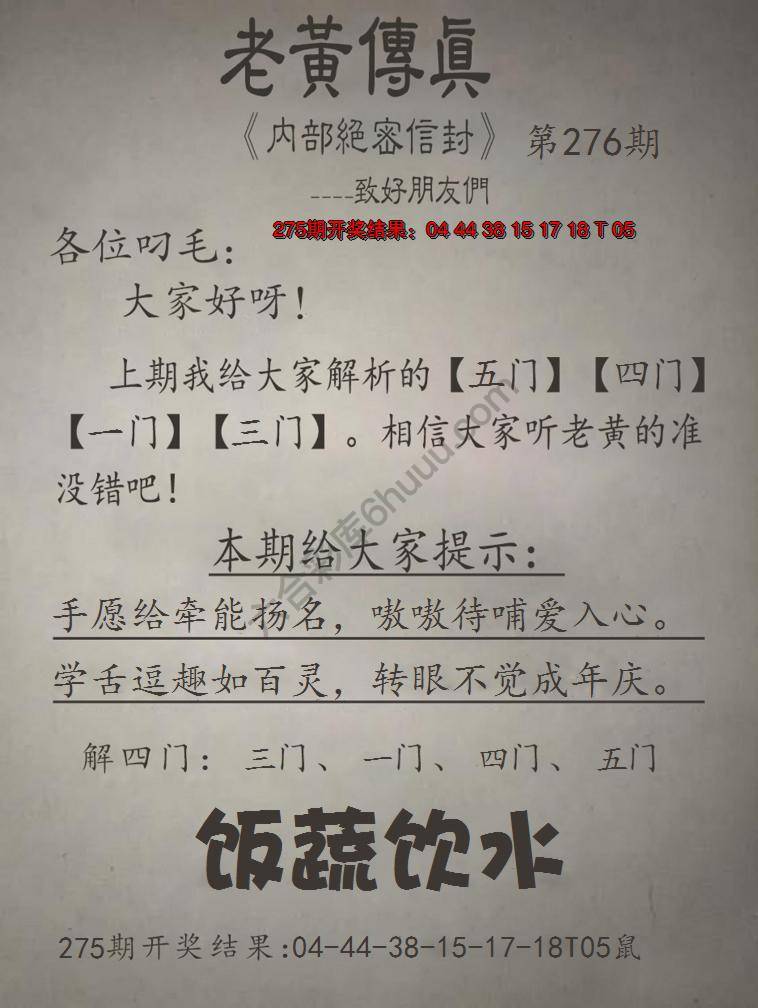 老黃傳眞
《内部絕密信封》 第276期
----致好朋友們
275期开奖结果：04 44 38 15 17 18 T 05
各位叼毛：
大家好呀！
上期我给大家解析的【五门】【四门】
【一门】【三门】。相信大家听老黄的准
没错吧！
本期给大家提示：
手愿给牵能扬名，嗷嗷待哺爱入心。
学舌逗趣如百灵，转眼不觉成年庆。
解四门：三门、一门、四门、五门
饭蔬饮水
275期开奖结果:04-44-38-15-17-18T05鼠
六合彩库6huuu.com